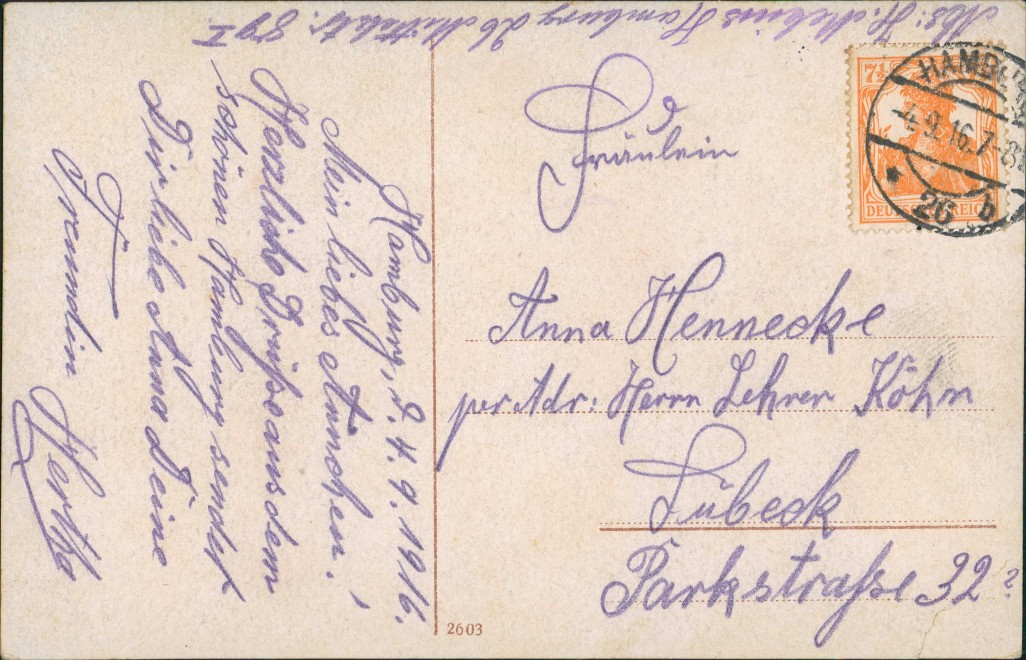 Abs: H. Mebius Hamburg 26 Mittelstr. 89 I
Hamburg, d. 4.9.1916.
Mein liebes Ännchen!
Herzliche Grüße aus dem
schönen Hamburg sendet
Dir liebe Anna Deine
Freundin Hertha
Fräulein
Anna Hennecke
per Adr: Herrn Lehrer Köhn
Lübeck
Parkstraße 32?
2603
HAMBURG
4.9.16.7-8
* 26 b
7½
DEUTSCHES REICH